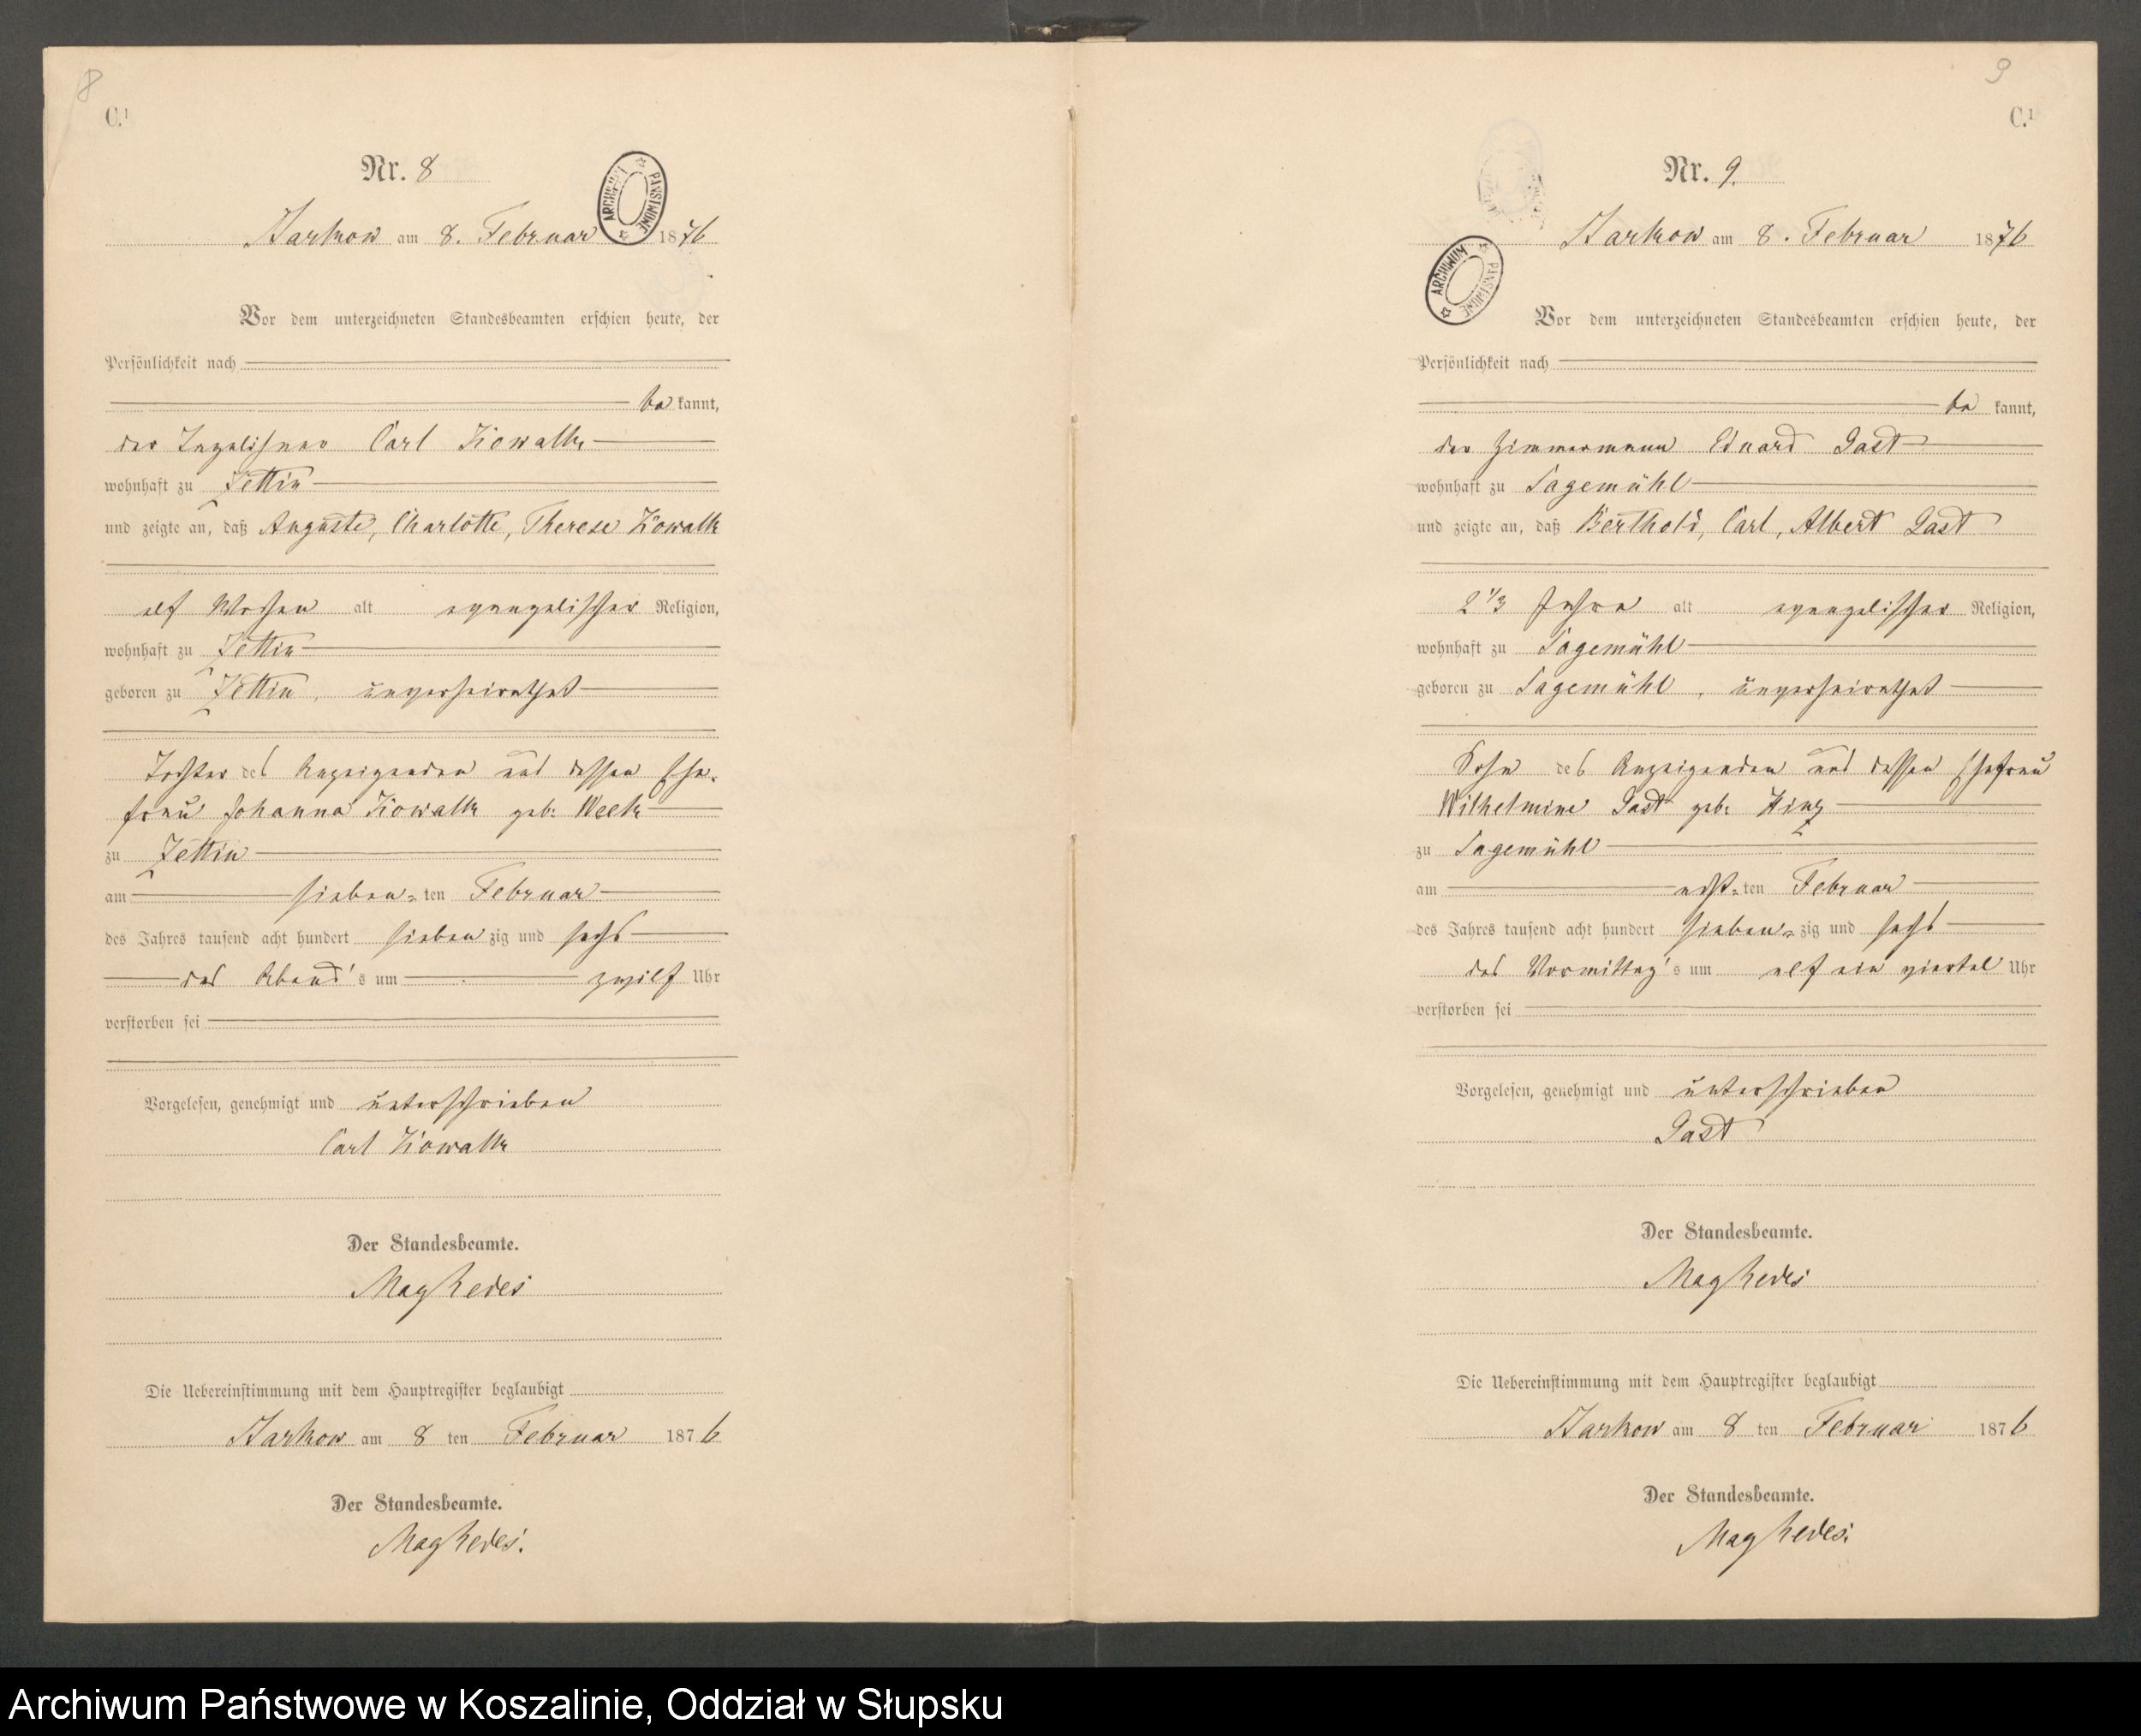 8
C.1
Nr. 8
ARCHIWUM PAŃSTWOWE
Starkow am 8. Februar 1876
Vor dem unterzeichneten Standesbeamten erschien heute, der
Persönlichkeit nach
be kannt,
der Tagelöhner Carl Kowalk
wohnhaft zu Zettin
und zeigte an, daß Auguste, Charlotte, Therese Kowalk
elf Wochen alt evangelischer Religion,
wohnhaft zu Zettin
geboren zu Zettin, unverheirathet
Tochter des Anzeigenden und dessen Ehe-
frau Johanna Kowalk geb. Week
zu Zettin
am sieben-ten Februar
des Jahres tausend acht hundert sieben zig und sechs
des Abend's um zwölf Uhr
verstorben sei
Vorgelesen, genehmigt und unterschrieben
Carl Kowalk
Der Standesbeamte.
Die Uebereinstimmung mit dem Hauptregister beglaubigt
Starkow am 8 ten Februar 1876
Der Standesbeamte.
9
C.1
Nr. 9.
Starkow am 8. Februar 1876
ARCHIWUM PAŃSTWOWE
Vor dem unterzeichneten Standesbeamten erschien heute, der
Persönlichkeit nach
be kannt,
der Zimmermann Eduard Gast
wohnhaft zu Sagemühl
und zeigte an, daß Berthold, Carl, Albert Gast
2 1/3 Jahre alt evangelischer Religion,
wohnhaft zu Sagemühl
geboren zu Sagemühl, unverheirathet
Sohn des Anzeigenden und dessen Ehefrau
Wilhelmine Gast geb. Hinz
zu Sagemühl
am acht-ten Februar
des Jahres tausend acht hundert sieben-zig und sechs
des Vormittag's um elf ein viertel Uhr
verstorben sei
Vorgelesen, genehmigt und unterschrieben
Gast
Der Standesbeamte.
Die Uebereinstimmung mit dem Hauptregister beglaubigt
Starkow am 8 ten Februar 1876
Der Standesbeamte.
Archiwum Państwowe w Koszalinie, Oddział w Słupsku